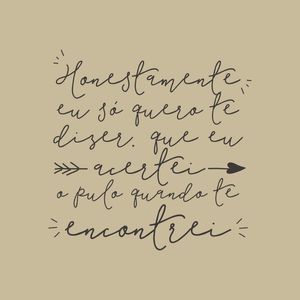 Honestamente
eu só quero te
dizer, que eu
acertei
o pulo quando te
encontrei